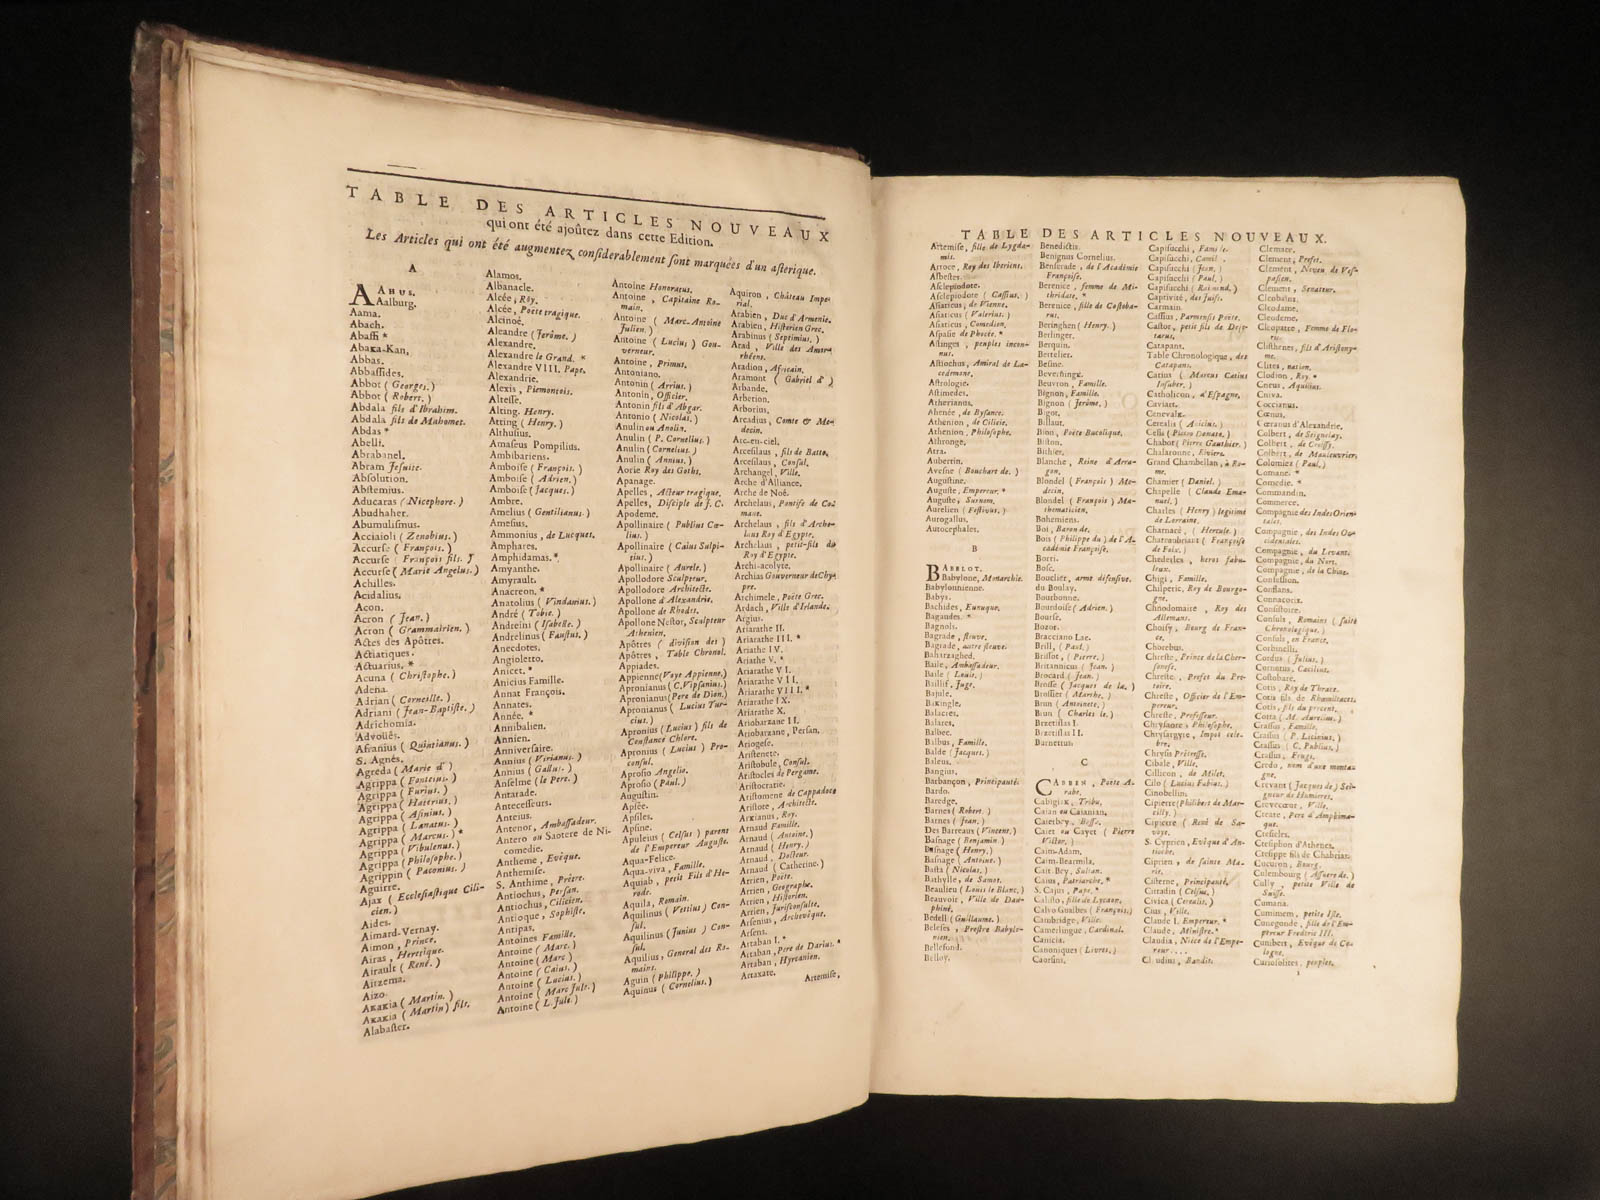 TABLE DES ARTICLES NOUVEAUX
qui ont été ajoûtez dans cette Edition.
Les Articles qui ont été augmentez considerablement sont marquées d'un asterique.
A
AAHUS.
Aalburg.
Aama.
Abach.
Abassi *
Abaka-Kan,
Abbas.
Abbassides.
Abbot (Georges.)
Abbot (Robert.)
Abdala fils d'Ibrahim.
Abdala fils de Mahomet.
Abdas *
Abelli.
Abrabanel.
Abram Jesuite.
Absolution.
Abstemius.
Aducaras (Nicephore.)
Abudhaher.
Abumulismus.
Acciaioli (Zenobius.)
Accurse (François.)
Accurse (François fils.
Accurse (Marie Angelus.)
Achilles.
Acidalius.
Acon.
Acron (Jean.)
Acron (Grammairien.)
Actes des Apôtres.
Actiatiques.
Actuarius, *
Acuna (Christophe.)
Adena.
Adrian (Corneille.)
Adriani (Jean-Baptiste.)
Adrichomia.
Advoués.
Afranius (Quintianus.)
S. Agnès.
Agreda (Marie d')
Agrippa (Fonteius.)
Agrippa (Furius.)
Agrippa (Haterius.)
Agrippa (Asinius.)
Agrippa (Lanatus.)
Agrippa (Marcus.) *
Agrippa (Vibulenus.)
Agrippa (Philosophe.)
Agrippin (Paconius.)
Aguirre.
Ajax (Ecclesiastique Cili-
cien.)
Aides.
Aimard-Vernay.
Aimon, Prince.
Airas, Heretique.
Airault (René.)
Aitzema.
Aizo.
Akakia (Martin.)
Akakia (Martin) fils.
Alabaster.
Alamos.
Albanacle.
Alcée, Roy.
Alcée, Poëte tragique.
Alcinoé.
Aleandre (Jerôme.)
Alexandre.
Alexandre le Grand. *
Alexandre VIII. Pape.
Alexandrie.
Alexis, Piemontois.
Altesse.
Alting, Henry.
Atting (Henry.)
Althusius.
Amaseus Pompilius.
Ambibariens.
Amboise (François.)
Amboise (Adrien.)
Amboise (Jacques.)
Ambre.
Amelius (Gentilianus.)
Amesius.
Ammonius, de Lucques.
Amphares.
Amphidamas. *
Amyanthe.
Amyrault.
Anacreon. *
Anatolius (Vindanius.)
André (Tobie.)
Andreini (Isabelle.)
Andrelinus (Faustus.)
Anecdotes.
Angioletto.
Anicet. *
Anicius Famille.
Annat François.
Annates.
Année. *
Annibalien.
Annien.
Anniversaire.
Annius (Virianus.)
Annius (Gallus.)
Anselme (le Pere.)
Antarade.
Antecesseurs.
Anteius.
Antenor, Ambassadeur.
Antero ou Saotere de Ni-
comédie.
Antheme, Evêque.
Anthemise.
S. Anthime, Prêtre.
Antiochus, Persan.
Antiochus, Cilicien.
Antioque, Sophiste.
Antipas.
Antoines Famille.
Antoine (Marc.)
Antoine (Marc)
Antoine (Caius.)
Antoine (Lucius.)
Antoine (Marc Jule.)
Antoine (L. Jule.)
Antoine Honoratus.
Antoine, Capitaine Ro-
main.
Antoine (Marc-Antoine
Julien.)
Antoine (Lucius) Gou-
verneur.
Antoine, Primus.
Antoniano.
Antonin (Arrius.)
Antonin, Officier.
Antonin fils d'Abgar.
Antonio (Nicolas.)
Anulin ou Anolin.
Anulin (P. Cornelius.)
Anulin (Cornelius.)
Anulin (Annius.)
Aorie Roy des Goths.
Apanage.
Apelles, Acteur tragique.
Apelles, Disciple de J. C.
Apodeme.
Apollinaire (Publius Cæ-
lius.)
Apollinaire (Caius Sulpi-
tius.)
Apollinaire (Aurele.)
Apollodore Sculpteur.
Apollodore Architecte.
Apollone d'Alexandrie.
Apollone de Rhodes.
Apollone Nestor, Sculpteur
Athenien.
Apôtres (division des)
Apôtres, Table Chronol.
Appiades.
Appienne (Voye Appienne.)
Apronianus (C. Vipsanius.)
Apronianus (Pere de Dion.)
Apronianus (Lucius Tur-
cius.)
Apronius (Lucius) fils de
Constance Chlore.
Apronius (Lucius) Pro-
consul.
Aprosio Angelio.
Aprosio (Paul.)
Augustin.
Apsée.
Apsiles.
Apsine.
Apuleius (Celsus) parent
de l'Empereur Auguste.
Aqua-Felice.
Aqua-viva, Famille.
Aquiab, petit Fils d'He-
rode.
Aquila, Romain.
Aquilinus (Vettius) Con-
sul.
Aquilinus (Junius) Con-
sul.
Aquilius, General des Ro-
mains.
Aguin (Philippe.)
Aquinus (Cornelius.)
Aquiron, Château Impe-
rial.
Arabien, Duc d'Armenie.
Arabien, Historien Grec.
Arabinus (Septimius.)
Arad, Ville des Amor-
rhéens.
Aradion, Africain.
Aramont (Gabriel d')
Arbande.
Arbetion.
Arborius.
Arcadius, Comte & Me-
decin.
Arc-en-ciel.
Arcesilaus, fils de Batto.
Arcesilaus, Consul.
Archangel, Ville.
Arche d'Alliance.
Arche de Noé.
Archelaus, Pontife de Co-
mane.
Archelaus, fils d'Arche-
laus Roy d'Egypte.
Archelaus, petit-fils du
Roy d'Egypte.
Archi-acolyte.
Archias Gouverneur de Chy-
pre.
Archimele, Poëte Grec.
Ardach, Ville d'Irlande.
Argius.
Ariarathe II.
Ariarathe III. *
Ariathe IV.
Ariathe V. *
Ariarathe VI.
Ariarathe VII.
Ariarathe VIII. *
Ariarathe IX.
Ariarathe X.
Ariobarzane II.
Ariobarzane, Persan.
Ariogese.
Aristenete.
Aristobule, Consul.
Aristocles de Pergame.
Aristocratie.
Aristomene de Cappadoce
Aristote, Architecte.
Arxianus, Roy.
Arnaud Famille.
Arnaud (Antoine.)
Arnaud (Henry.)
Arnaud, Docteur.
Arnaud (Catherine.)
Arrien, Poëte.
Arrien, Geographe.
Artien, Historien.
Artien, Jurisconsulte.
Arsenius, Archevêque.
Arsens.
Artaban I. *
Artaban, Pere de Darius. *
Artaban, Hyrcanien.
Artaxate.
Artemise,
TABLE DES ARTICLES NOUVEAUX.
Artemise, fille de Lygda-
mis.
Artoce, Roy des Iberiens.
Asbestes.
Asclepiodote.
Asclepiodote (Cassius.)
Asiaticus, de Vienne.
Asiaticus (Valerius.)
Asiaticus, Comedien.
Aspasie de Phocée. *
Astinges, peuples incon-
nus.
Astiochus, Amiral de La-
cedemone.
Astrologie.
Astimedes.
Atherianus.
Athenée, de Bysance.
Athenion, de Cilicie.
Athenion, Philosophe.
Athronge.
Atra.
Aubertin.
Avesne (Bouchart de.)
Augustine.
Auguste, Empereur. *
Auguste, Surnom.
Aurelien (Festivus.)
Aurogallus.
Autocephales.
B
BABELOT.
Babylone, Monarchie.
Babylonienne.
Babys.
Bachides, Eunuque.
Bagandes. *
Bagnols.
Bagrade, fleuve.
Bagrade, autre fleuve.
Baharzaghed.
Baile, Ambassadeur.
Baile (Louis.)
Baillif, Juge.
Bajule.
Balacres.
Balares.
Balbee.
Balbus, Famille.
Balde (Jacques.)
Baleus.
Bangius.
Barbançon, Principauté.
Bardo.
Baredge.
Barnes (Robert.)
Barnes (Jean.)
Des Barreaux (Vincent.)
Basnage (Benjamin.)
Basnage (Henry.)
Basnage (Antoine.)
Basta (Nicolas.)
Bathylle, de Samos.
Beaulieu (Louis le Blanc.)
Beauvoir, Ville de Dau-
phiné.
Bedell (Guillaume.)
Beleses, Prestre Babylo-
nien.
Bellefond.
Belloy.
Benedictis.
Benignus Cornelius.
Benserade, de l'Académie
Françoise.
Berenice, femme de Mi-
thridate. *
Berenice, fille de Costoba-
rus.
Beringhen (Henry.)
Berlinger.
Berquin.
Bertelier.
Besme.
Bevernink.
Beuvron, Famille.
Bignon, Famille.
Bignon (Jerôme.)
Bigot.
Billaut.
Bion, Poëte Bucolique.
Biston.
Bithier.
Blanche, Reine d'Arra-
gon.
Blondel (François) Me-
decin.
Blondel (François) Ma-
thematicien.
Bohemiens.
Boi, Baron de.
Bois (Philippe du) de l'A-
cadémie Françoise.
Borri.
Bosc.
Bouclier, arme défensive.
du Boulay.
Bourbonne.
Bourdoise (Adrien.)
Bourse.
Bozor.
Bracciano Lac.
Brill, (Paul.)
Brissot, (Pierre.)
Britannicus (Jean.)
Brocard (Jean.)
Brosse (Jacques de la.)
Brossier (Marthe.)
Brun (Antoinete.)
Brun (Charles le.)
Bzetislas I.
Bzetislas II.
Burnettus.
C
CABBEN, Poëte A-
rabe.
Cabigiak, Tribu.
Caian ou Caianian.
Caierbey, Besse.
Caiet ou Cayet (Pierre
Victor.)
Caim-Adam.
Caim-Bearmila.
Cait-Bey, Sultan.
Caius, Patriarche. *
S. Caius, Pape. *
Calisto, fille de Lycaon.
Calvo Gualbes (François.)
Cambridge, Ville.
Camerlingue, Cardinal.
Canicia.
Canoniques (Livres.)
Caorsins.
Capisucchi, Famille.
Capisucchi, Camil.
Capisucchi (Jean.)
Capisucchi (Paul.)
Capisucchi (Raimond.)
Captivité, des Juifs.
Carmain.
Cassius, Parmensis Poëte.
Castor, petit fils de Dejo-
tarus.
Catapans.
Table Chronologique, des
Catapans.
Catius (Marcus Catius
Insuber.)
Catholicon, d'Espagne.
Caviare.
Cenevalk.
Cerealis (Anicius.)
Cessi (Pierre Donate.)
Chabot (Pierre Gauthier.)
Chalaronne, Riviere.
Grand Chambellan, à Ro-
me.
Chamier (Daniel.)
Chapelle (Claude Ema-
nuel.)
Charles (Henry) legitimé
de Lorraine.
Charnacé, (Hercule.)
Chateaubriant (Françoise
de Foix.)
Chederles, heros fabu-
leux.
Chigi, Famille.
Chilperic, Roy de Bourgo-
gne.
Chnodomaire, Roy des
Allemans.
Choisy, Bourg de Fran-
ce.
Chorebus.
Chreste, Prince de la Cher-
sonese.
Chreste, Prefet du Pre-
toire.
Chreste, Officier de l'Em-
pereur.
Chreste, Professeur.
Chrysante, Philosophe.
Chrysargyre, Impôt cele-
bre.
Chrysis Prêtresse.
Cibale, Ville.
Cillicon, de Milet.
Cilo (Lucius Fabius.)
Cinobellin.
Cipierre (Philibert de Mar-
cilly.)
Cipierre (René de Sa-
voye.
S. Cyprien, Evêque d'An-
tioche.
Ciprien, de sainte Ma-
rie.
Cisterne, Principauté.
Cittadin (Celsus.)
Civica (Cerealis.)
Cius, Ville.
Claude I. Empereur. *
Claude, Ministre. *
Claudia, Niéce de l'Empe-
reur....
Claudius, Bandit.
Clemate.
Clement, Prefet.
Clement, Neveu de Ves-
pasien.
Clement, Senateur.
Cleobulus.
Cleodame.
Cleodeme.
Cleopatre, Femme de Flo-
ric.
Clisthenes, fils d'Aristony-
me.
Clites, nation.
Clodion, Roy. *
Cneus, Aquilius.
Cniva.
Coccianus.
Cœnus.
Cœranus d'Alexandrie.
Colbert, de Seignelay.
Colbert, de Croissy.
Colbert, de Maulevrier.
Colomiés (Paul.)
Comane. *
Comedie. *
Commandin.
Commerce.
Compagnie des Indes Orien-
tales.
Compagnie, des Indes Oc-
cidentales.
Compagnie, du Levant.
Compagnie, du Nort.
Compagnie, de la Chine.
Confession.
Conflans.
Connacorix.
Consistoire.
Consuls, Romains (suite
Chronologique.)
Consuls, en France.
Corbinelli.
Cordus (Julius.)
Cornutus, Cæcilius.
Costobare.
Cotis, Roy de Thrace.
Cotis fils de Rhæmitacès.
Cotis, fils du precent.
Cotta (M. Aurelius.)
Crassus, Famille.
Crassus (P. Licinius.)
Crassus (C. Publius.)
Crassus, Frugi.
Credo, nom d'une montag-
gne.
Crevant (Jacques de) Sei-
gneur de Humieres.
Crevecœur, Ville.
Create, Pere d'Amphima-
que.
Cresicles.
Cresiphon d'Athenes.
Cresippe fils de Chabrias.
Cucuron, Bourg.
Culembourg (Assuere de.)
Cully, petite Ville de
Suisse.
Cumania.
Cuminiem, petite Isle.
Cunegonde, fille de l'Em-
pereur Frederic III.
Cunibert, Evêque de Co-
logne.
Curiosolites, peuples.